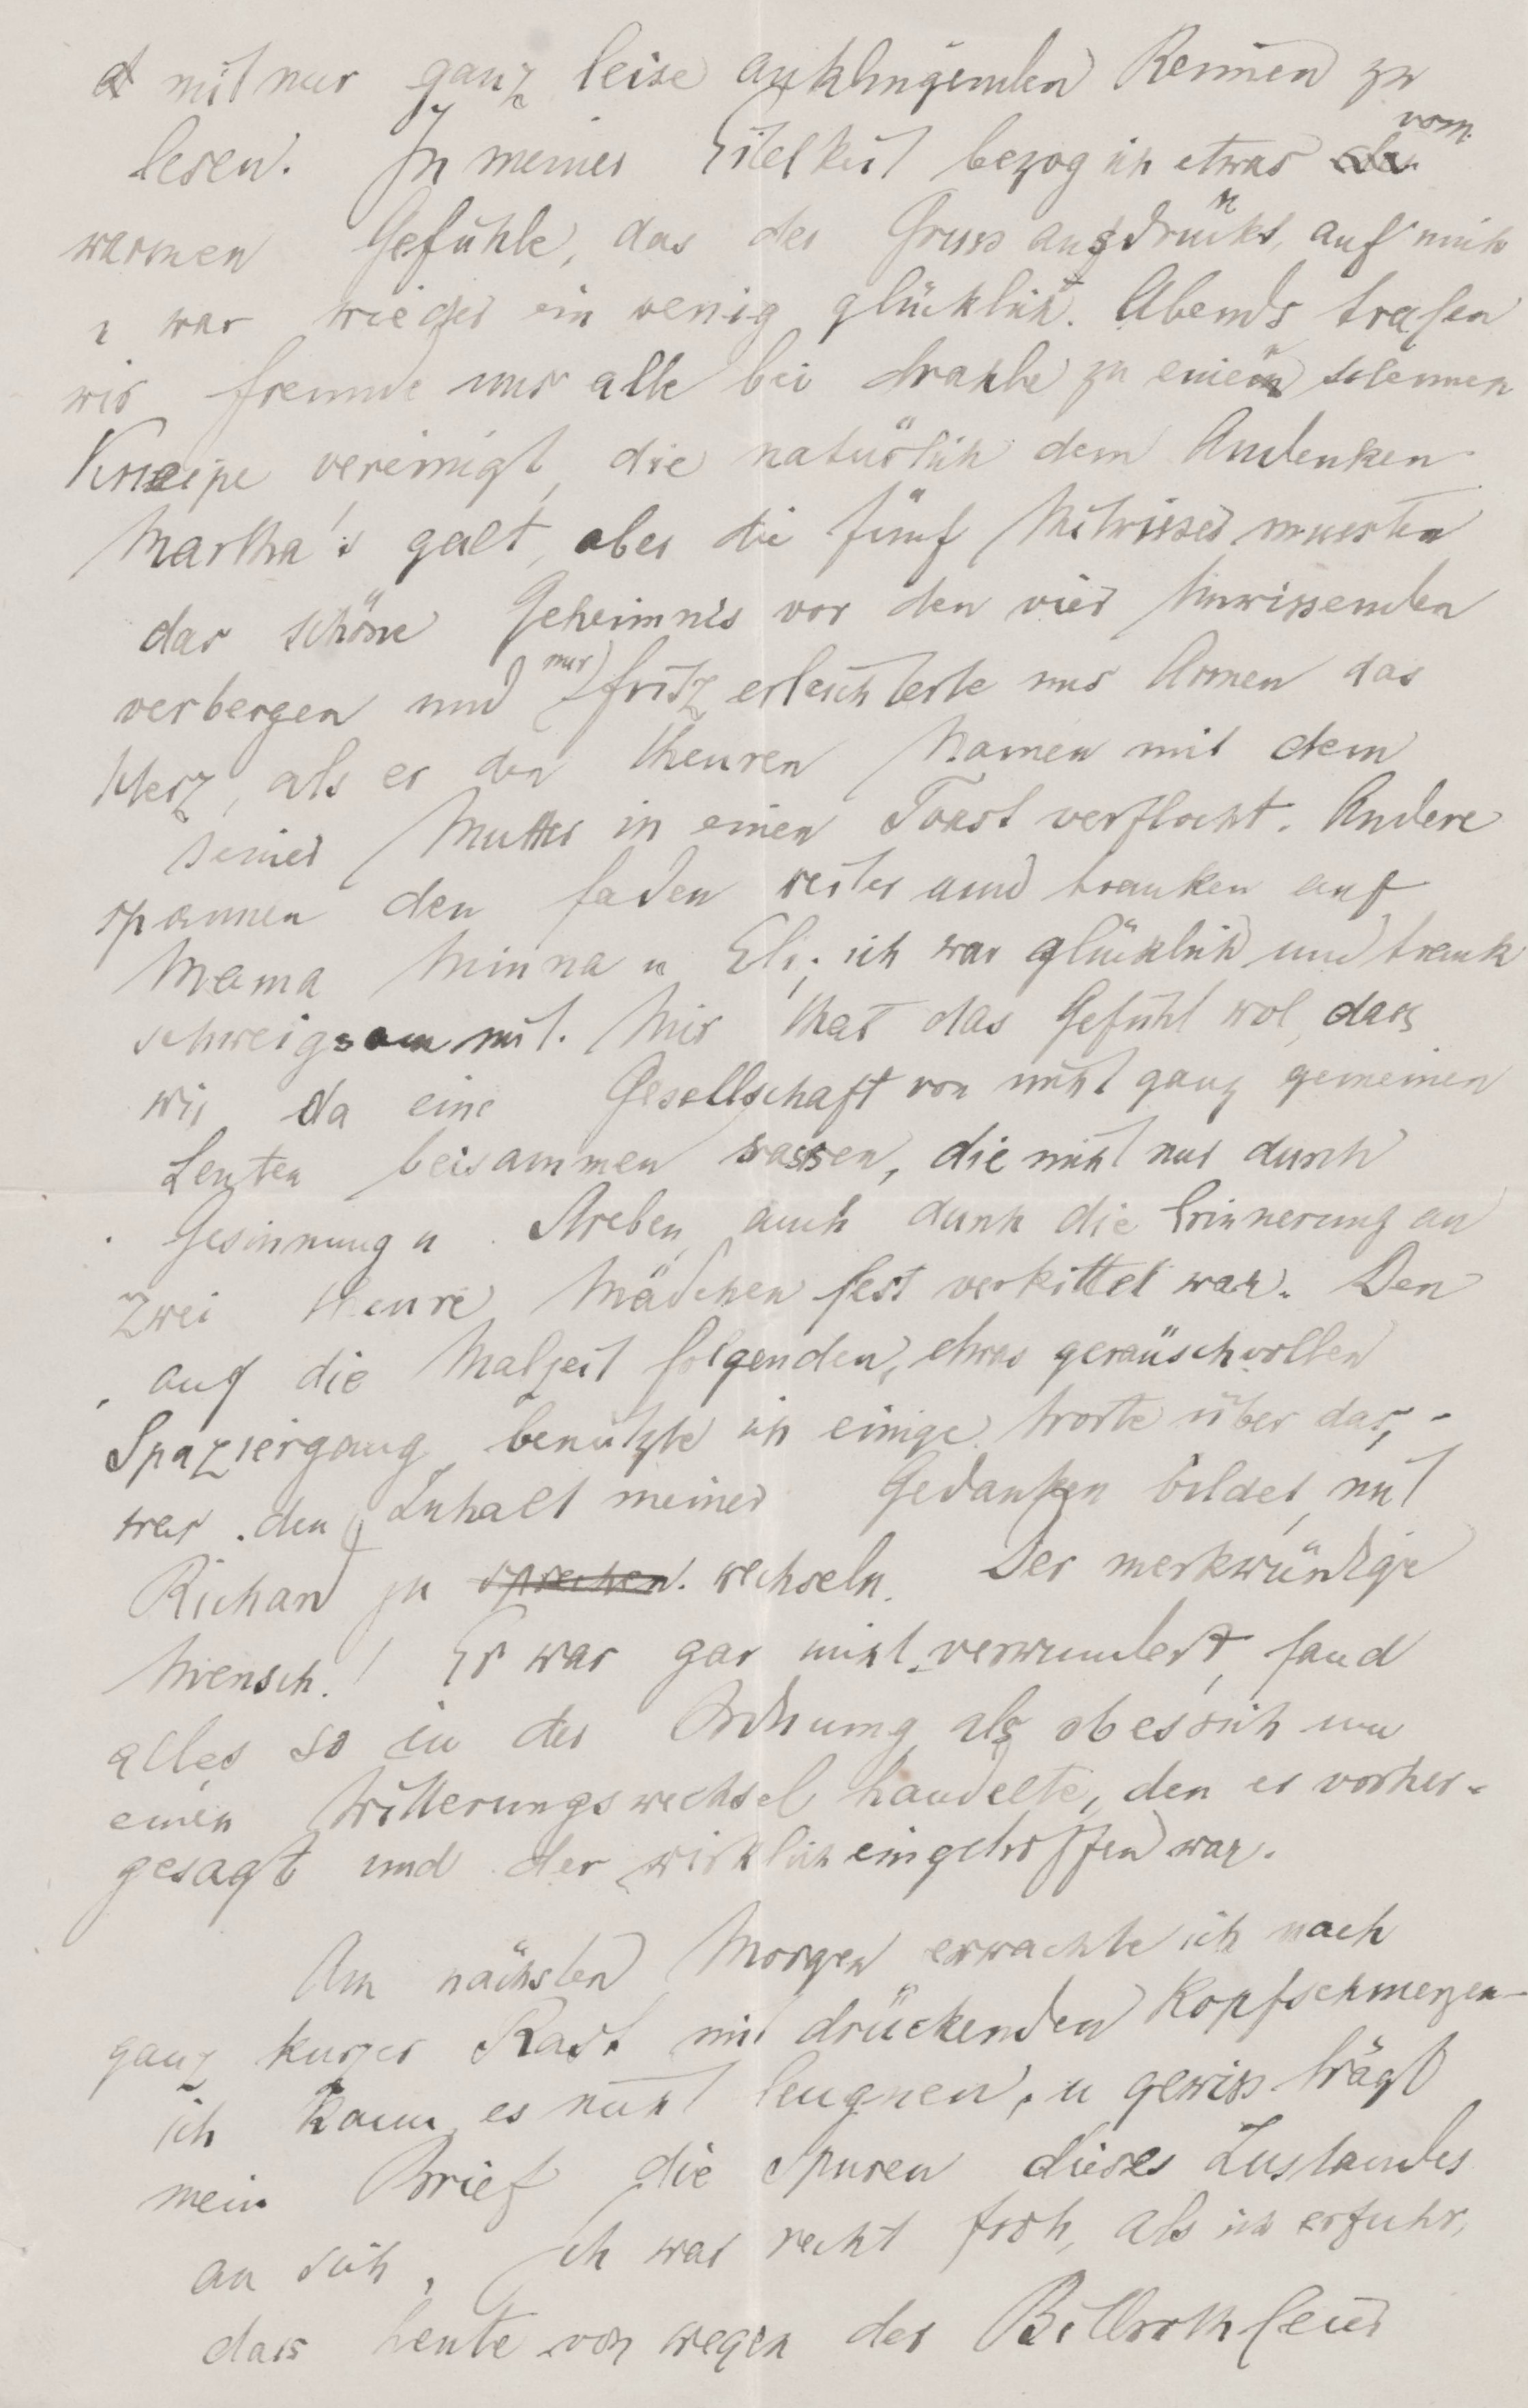 mit nur ganz leise anklingenden Reimen zu
lesen. In meiner Eitelkeit bezog ich etwas vom
warmen Gefühle, das der Gruss ausdrückt, auf mich
u war wieder ein wenig glücklich. Abends trafen
wir Freunde uns alle bei zu einer solennen
Kneipe vereinigt, die natürlich dem Andenken
Martha's galt, aber die fünf Mitwisser mussten
das schöne Geheimnis vor den vier Unwissenden
verbergen und nur Fritz erleichterte uns Armen das
Herz, als er den theuren Namen mit dem
seiner Mutter in einen Toast verflocht. Andere
spannen den Faden weiter und tranken auf
Mama Minna u Eli; ich war glücklich und trank
schweigsam mit. Mir that das Gefühl wol, dass
wir da eine Gesellschaft von nicht ganz gemeinen
Leuten beisammen wassen, die nicht nur durch
Gesinnung u Streben, auch durch die Erinnerung an
zwei theure Mädchen fest verkittet war. Den
auf die Malzeit folgenden, etwas geräuschvollen
Spaziergang benützte ich einige Worte über das, -
was den Inhalt meiner Gedanken bildet, mit
Richard zu sprechen. wechseln. Der merkwürdige
Mensch! Er war gar nicht verwundert, fand
alles so in der Ordnung als ob es sich um
einen Witterungswechsel handelte, den er vorher-
gesagt und der wirklich eingetroffen war.
Am nächsten Morgen erwachte ich nach
ganz kurzer Rast mit drückenden Kopfschmerzen -
ich kann es nicht leugnen, u gewiss trägt
mein Brief die Spuren dieses Zustandes
an sich. Ich war recht froh, als ich erfuhr,
dass heute von wegen der Billrothfeier